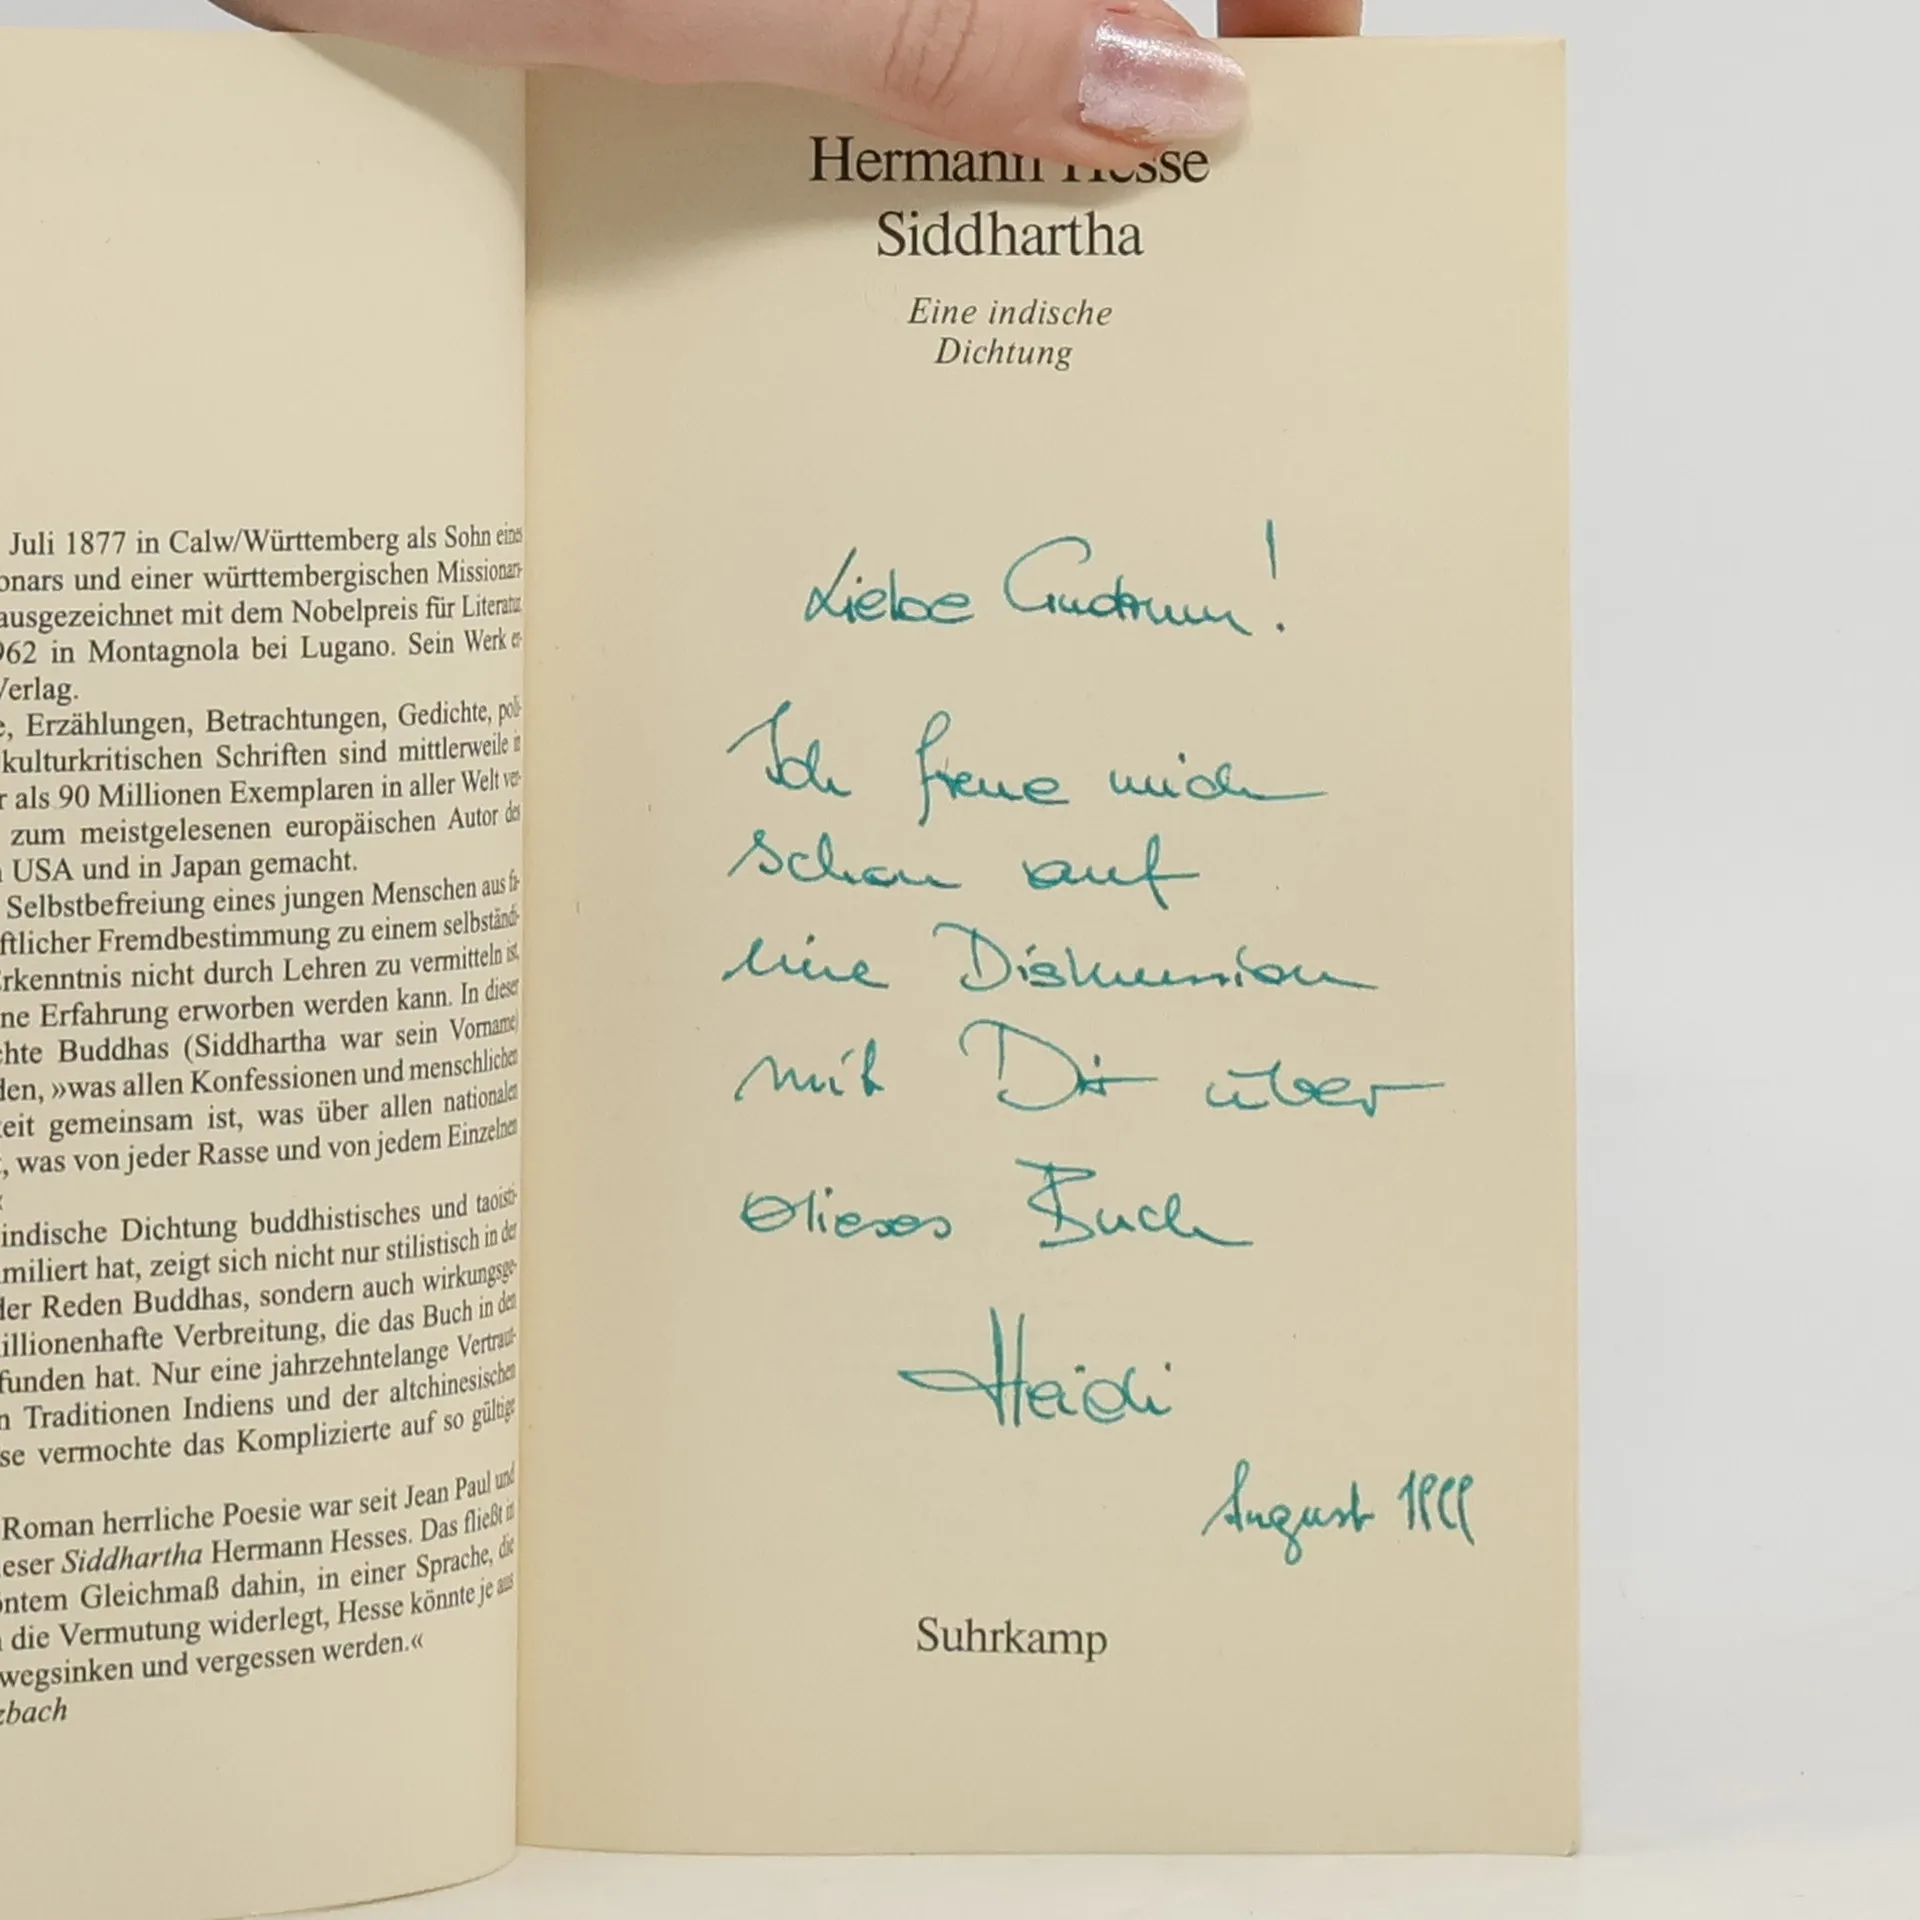 Juli 1877 in Calw/Württemberg als Sohn eines
onars und einer württembergischen Missionar-
ausgezeichnet mit dem Nobelpreis für Literatur
962 in Montagnola bei Lugano. Sein Werk er-
Verlag.
e, Erzählungen, Betrachtungen, Gedichte, poli-
kulturkritischen Schriften sind mittlerweile in
r als 90 Millionen Exemplaren in aller Welt ver-
zum meistgelesenen europäischen Autor des
USA und in Japan gemacht.
Selbstbefreiung eines jungen Menschen aus fa-
ftlicher Fremdbestimmung zu einem selbständi-
Erkenntnis nicht durch Lehren zu vermitteln ist,
ne Erfahrung erworben werden kann. In dieser
chte Buddhas (Siddhartha war sein Vorname)
den, »was allen Konfessionen und menschlichen
keit gemeinsam ist, was über allen nationalen
, was von jeder Rasse und von jedem Einzelnen
indische Dichtung buddhistisches und taoisti-
miliert hat, zeigt sich nicht nur stilistisch in der
der Reden Buddhas, sondern auch wirkungsge-
illionenhafte Verbreitung, die das Buch in den
funden hat. Nur eine jahrzehntelange Vertraut-
n Traditionen Indiens und der altchinesischen
se vermochte das Komplizierte auf so gültige
Roman herrliche Poesie war seit Jean Paul und
ieser Siddhartha Hermann Hesses. Das fließt in
öntem Gleichmaß dahin, in einer Sprache, die
die Vermutung widerlegt, Hesse könnte je aus
wegsinken und vergessen werden.«
zbach
Hermann Hesse
Siddhartha
Eine indische
Dichtung
Liebe Gudrun!
Ich freue mich
schon auf
eine Diskussion
mit Dir über
dieses Buch
Heidi
August 1999
Suhrkamp